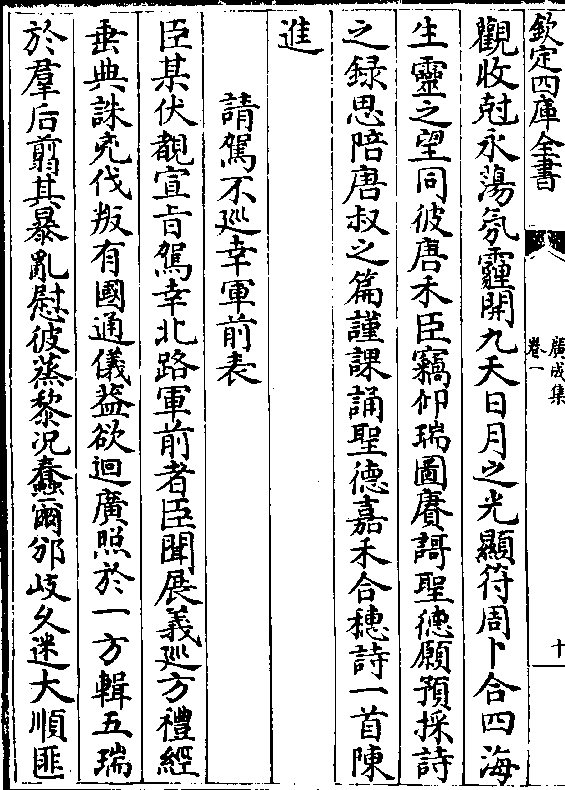 欽定四庫全書
廣成集
卷一
十
觀收尅永蕩氛霾開九天日月之光顯符周卜合四海
生靈之望同彼唐禾臣竊仰瑞圖賡謌聖德願預採詩
之録思陪唐叔之篇謹課誦聖德嘉禾合穗詩一首陳
進
請駕不廵幸軍前表
臣某伏覩宣㫖駕幸北路軍前者臣聞展義廵方禮經
垂典誅兇伐叛有國通儀葢欲迴廣照於一方輯五瑞
於羣后翦其暴亂慰彼蒸黎况蠢爾邠岐久迷大順匪